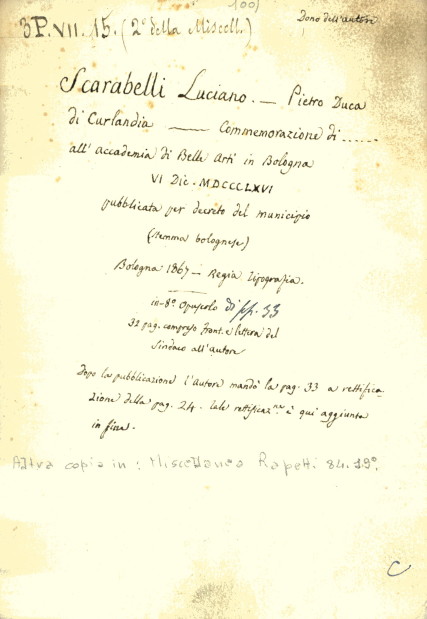 (100)
3P.VII.15. (2º della Miscell.)
Dono dell'autore
Scarabelli Luciano. — Pietro Duca
di Curlandia — Commemorazione di ......
all'Accademia di Belle Arti in Bologna
VI Dic. MDCCCLXVI
pubblicata per decreto del municipio
(stemma bolognese)
Bologna 1867 — Regia Tipografia.
in-8º Opuscolo di pp. 33
32 pag. compreso front. e lettera del
Sindaco all'autore
Dopo la pubblicazione l'autore mandò la pag. 33 a rettifica-
zione della pag. 24. tale rettificaz.ne è qui aggiunta
in fine.
Altra copia in: Miscellanea Rapetti 84.19º.
C